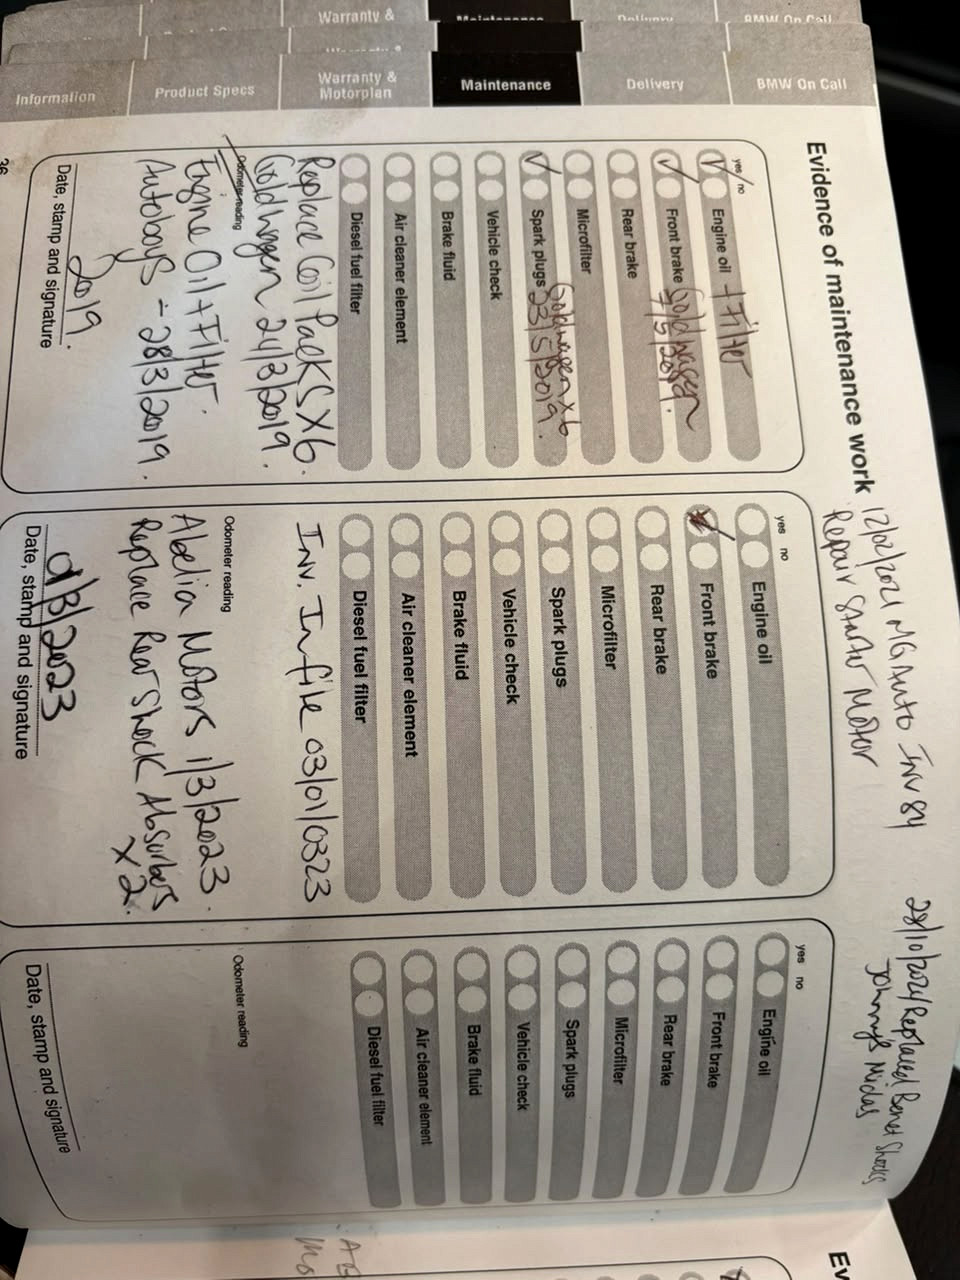 Warranty &
Maintenance
Delivery
BMW On Call
Information
Product Specs
Warranty &
Motorplan
Maintenance
Delivery
BMW On Call
Evidence of maintenance work
12/02/2021 MG Auto Inv 84
Repair Starter Motor
28/10/2024 Replaced Shocks
Johnny's Midas
yes no
Engine oil + Filter
Front brake Goldwagen
7/5/2019.
Rear brake
Microfilter
Spark plugs Goldwagen x6
23/5/2019.
Vehicle check
Brake fluid
Air cleaner element
Diesel fuel filter
Replace Coil Packs X6.
Goldwagen 24/3/2019.
Odometer reading
Engine Oil + Filter.
Autoboys - 28/3/2019.
2019.
Date, stamp and signature
36
yes no
Engine oil
Front brake
Rear brake
Microfilter
Spark plugs
Vehicle check
Brake fluid
Air cleaner element
Diesel fuel filter
Inv. In file 03/01/0323
Odometer reading
Abelia Motors 1/3/2023.
Replace Rear Shock Absorbers
X2.
/3/2023
Date, stamp and signature
yes no
Engine oil
Front brake
Rear brake
Microfilter
Spark plugs
Vehicle check
Brake fluid
Air cleaner element
Diesel fuel filter
Odometer reading
Date, stamp and signature
Ev